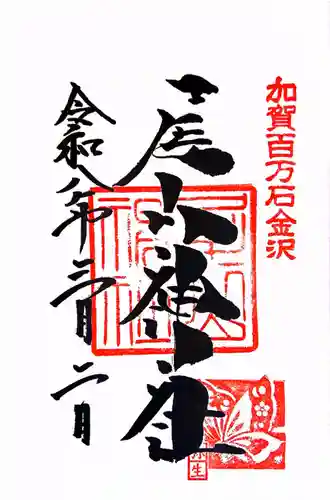 加賀百万石金沢
尾山神社
令和八年三月二日
弥生